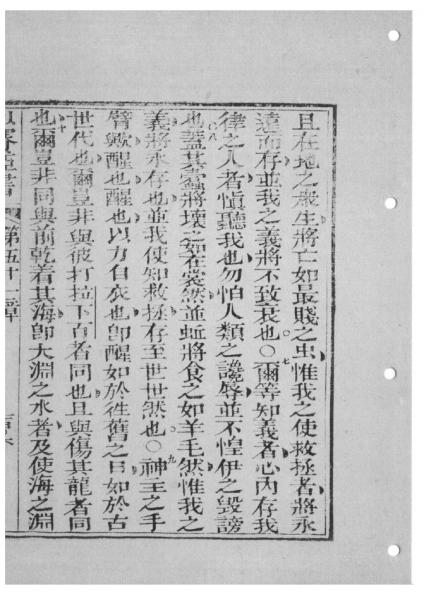 且在地之衆生將亡如最賤之虫惟我之使救拯者將永
遠而存並我之義將不致衰也○七爾等知義者心內存我
律之人者愼聽我也勿怕人類之讒辱並不惶伊之毀謗
八也蓋其蠹將壞之如在裳然並蚯將食之如羊毛然惟我之
義將永存也並我使知救拯存至世世然也○九神主之手
臂歟醒也醒也以力自衣也卽醒如於徃舊之日如於古
世代也爾豈非與彼打拉下百者同也且與傷其龍者同
十也爾豈非同與前乾着其海卽大淵之水者及使海之淵
第五十一章